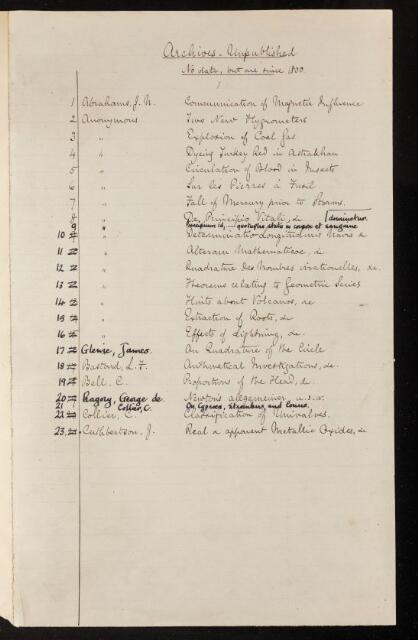 Archives - Unpublished
No date, but are since 1800.
1 Abrahams, J. N. Communication of Magnetic Influence
2 Anonymous Two New Hygrometers
3 " Explosion of Coal Gas
4 " Dyeing Turkey Red in Astrakhan
5 " Circulation of Blood in Insects
6 " Sur les Pierres à Fusil
7 " Fall of Mercury prior to Storms.
8 " De Principio Vitali, &c
9 " in corpore et sanguine
10 " Determinatio Longitudinis Navis &
11 " Alterum Mathematicae, &
12 " Quadrature des Nombres irrationelles, &c.
13 " Theorems relating to Geometric Series
14 " Hints about Volcanos, &c
15 " Extraction of Roots, &c
16 " Effects of Lightning, &c.
17 Glenie, James. On Quadrature of the Circle
18 Bastard, L. F. Arithmetical Investigations, &c.
19 Bell, C. Proportions of the Head, &c.
20 George de. Newton's allgemeiner u.s.w.
21 Collier, C. On Cypraea, Strombus, and Conus.
22 Collier, C. Classification of Univalves.
23 Cuthbertson, J. Real & apparent Metallic Oxides, &c